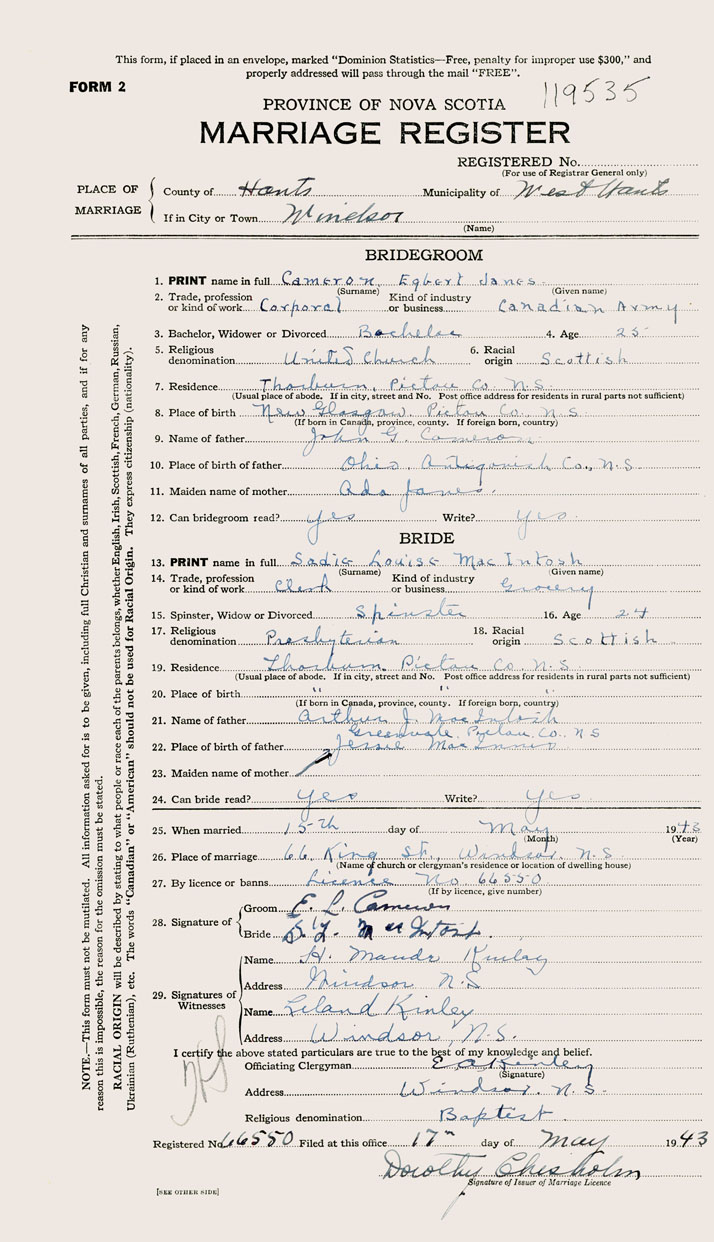 This form, if placed in an envelope, marked "Dominion Statistics—Free, penalty for improper use $300," and
properly addressed will pass through the mail "FREE".
FORM 2
119535
PROVINCE OF NOVA SCOTIA
MARRIAGE REGISTER
REGISTERED No.
(For use of Registrar General only)
PLACE OF MARRIAGE
County of Hants Municipality of West Hants
If in City or Town Windsor
(Name)
BRIDEGROOM
1. PRINT name in full Cameron, Egbert James
(Surname) (Given name)
2. Trade, profession or kind of work Corporal Kind of industry or business Canadian Army
3. Bachelor, Widower or Divorced Bachelor 4. Age 25
5. Religious denomination United Church 6. Racial origin Scottish
7. Residence Thorburn, Pictou Co. N.S.
(Usual place of abode. If in city, street and No. Post office address for residents in rural parts not sufficient)
8. Place of birth New Glasgow, Pictou Co. N.S.
(If born in Canada, province, county. If foreign born, country)
9. Name of father John G. Cameron
10. Place of birth of father Ohio, Antigonish Co., N.S.
11. Maiden name of mother Ada James.
12. Can bridegroom read? yes Write? yes.
BRIDE
13. PRINT name in full Sadie Louise MacIntosh
(Surname) (Given name)
14. Trade, profession or kind of work Clerk Kind of industry or business Grocery
15. Spinster, Widow or Divorced Spinster 16. Age 24
17. Religious denomination Presbyterian 18. Racial origin Scottish
19. Residence Thorburn Pictou Co. N.S.
(Usual place of abode. If in city, street and No. Post office address for residents in rural parts not sufficient)
20. Place of birth " " "
(If born in Canada, province, county. If foreign born, country)
21. Name of father Arthur J. MacIntosh
Greenvale, Pictou Co. N S
22. Place of birth of father Jessie MacInnis
23. Maiden name of mother
24. Can bride read? yes Write? yes.
25. When married 15th day of May 1943
(Month) (Year)
26. Place of marriage 66 King St., Windsor, N.S.
(Name of church or clergyman's residence or location of dwelling house)
27. By licence or banns Licence No. 66550
(If by licence, give number)
28. Signature of
Groom E. L. Cameron
Bride S. L. MacIntosh.
29. Signatures of Witnesses
Name H. Maude Kinley
Address Windsor N.S
Name Leland Kinley
Address Windsor, N.S.
I certify the above stated particulars are true to the best of my knowledge and belief.
Officiating Clergyman E A Kinley
(Signature)
Address Windsor, N.S.
Religious denomination Baptist
Registered No. 66550 Filed at this office 17th day of May 1943
Dorothy Chisholm
Signature of Issuer of Marriage Licence
[SEE OTHER SIDE]
NOTE.—This form must not be mutilated. All information asked for is to be given, including full Christian and surnames of all parties, and if for any
reason this is impossible, the reason for the omission must be stated.
RACIAL ORIGIN will be described by stating to what people or race each of the parents belongs, whether English, Irish, Scottish, French, German, Russian,
Ukrainian (Ruthenian), etc. The words "Canadian" or "American" should not be used for Racial Origin. They express citizenship (nationality).